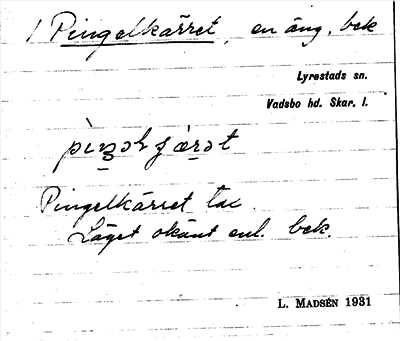 1 Pingelkärret, en äng. bek
Lyrestads sn.
Vadsbo hd. Skar. l.
Pingelkärret
Läget okänt enl. bek.
L. MADSÉN 1931